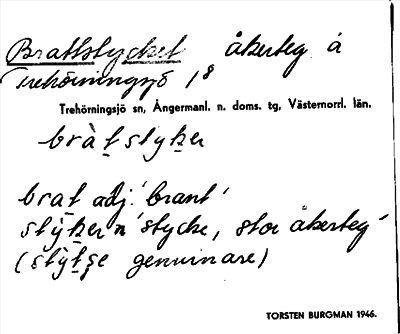 Brattstycket åkerteg å
Trehörningsjö 1⁸
Trehörningsjö sn, Ångermanl. n. doms. tg, Västernorrl. län.
bràt styker
brat adj. 'brant'
stýker n 'stycke, stor åkerteg'
(stỳtşe genuinare)
TORSTEN BURGMAN 1946.